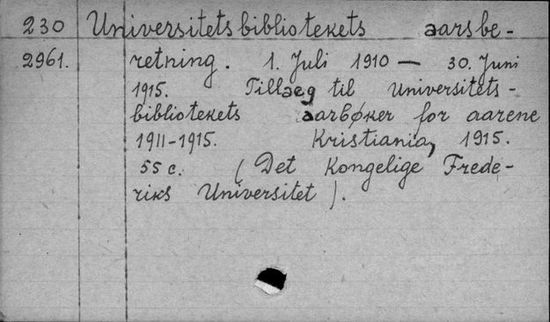 230 Universitetsbibliotekets aarsbe-
2961. retning. 1. Juli 1910 — 30. Juni
1915. Tillæg til Universitets-
bibliotekets aarbøker for aarene
1911-1915. Kristiania, 1915.
55 c. (Det Kongelige Frede-
riks Universitet).